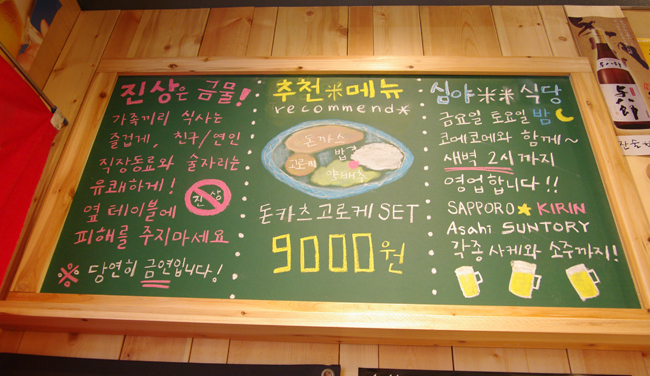 진상은 금물!
가족끼리 식사는
즐겁게, 친구/연인
직장동료와 술자리는
유쾌하게!
진상
옆 테이블에
피해를 주지마세요
※ 당연히 금연입니다!
추천※메뉴
recommend※
돈까스
고로케
밥
양배추
돈카츠고로케 SET
9000원
심야※※식당
금요일 토요일 밤
코메코메와 함께~
새벽 2시까지
영업합니다!!
SAPPORO★KIRIN
Asahi SUNTORY
각종사케와 소주까지!